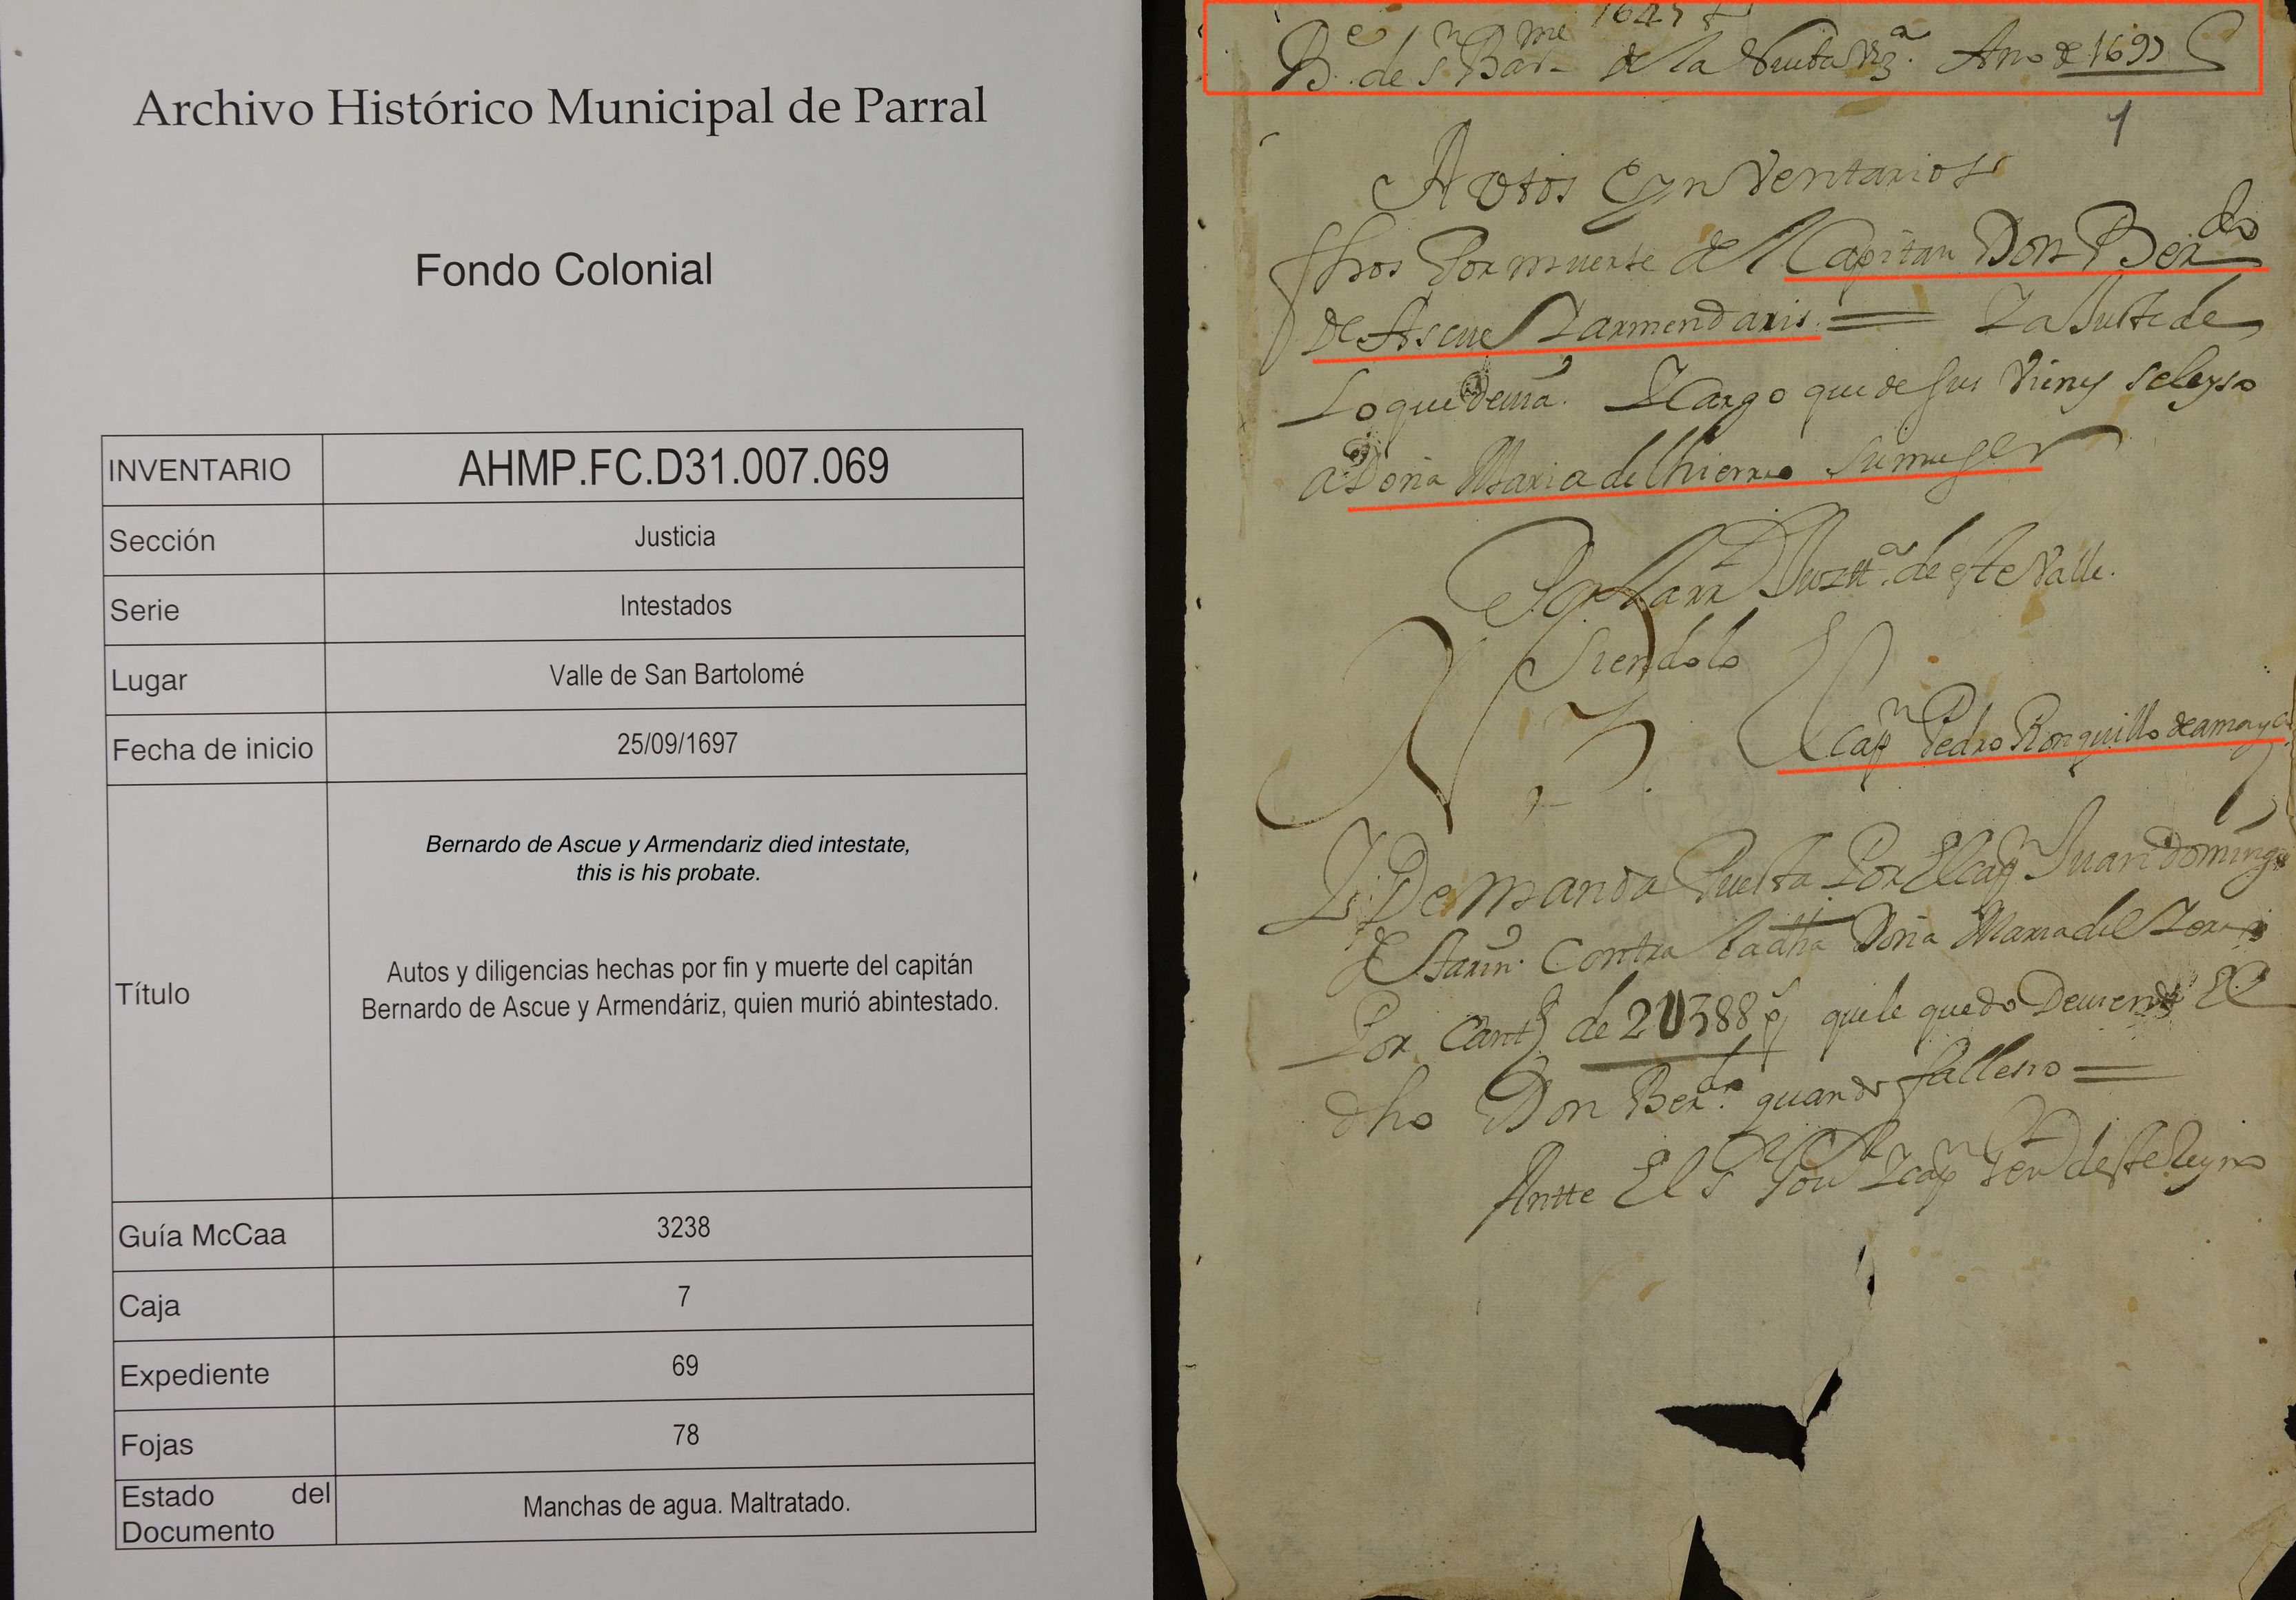 Archivo Histórico Municipal de Parral
Fondo Colonial
INVENTARIO AHMP.FC.D31.007.069
Sección Justicia
Serie Intestados
Lugar Valle de San Bartolomé
Fecha de inicio 25/09/1697
Título
Bernardo de Ascue y Armendariz died intestate,
this is his probate.
Autos y diligencias hechas por fin y muerte del capitán
Bernardo de Ascue y Armendáriz, quien murió abintestado.
Guía McCaa 3238
Caja 7
Expediente 69
Fojas 78
Estado del
Documento Manchas de agua. Maltratado.
de la Año de 1697
1
Autos Eynventarios
fhos Por muerte del Capitan Don Berdo
de Ascue Yarmendaris = 
Lo que devia. Y Cargo que de sus vienes seleyso
a Doña Maria del hierro su muger
Por la Rl Justta de este Valle.
Siendolo
El Capn Pedro Ronquillo de amaya
Y Demanda Puesta Por El capn Juan domingo
Contra la dha Doña Maria del
Por Cantd de 2U388 ps que le quedo Deviendo El
dho Don Berdo quando fallesio =
Antte El Sr Gou Y capn Gen deste Reyno